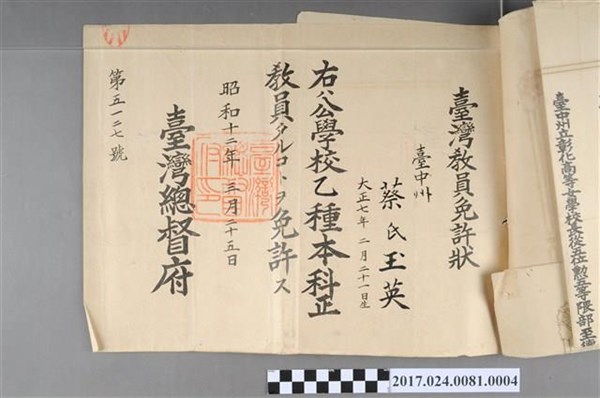 臺灣教員免許狀
臺中州
蔡氏玉英
大正七年二月二十一日生
右公學校乙種本科正
教員タルコトヲ免許ス
昭和十二年三月二十五日
臺灣總督府
第五一二七號
臺中州立彰化高等女學校長從五位勲五等隈部至
2017.024.0081.0004